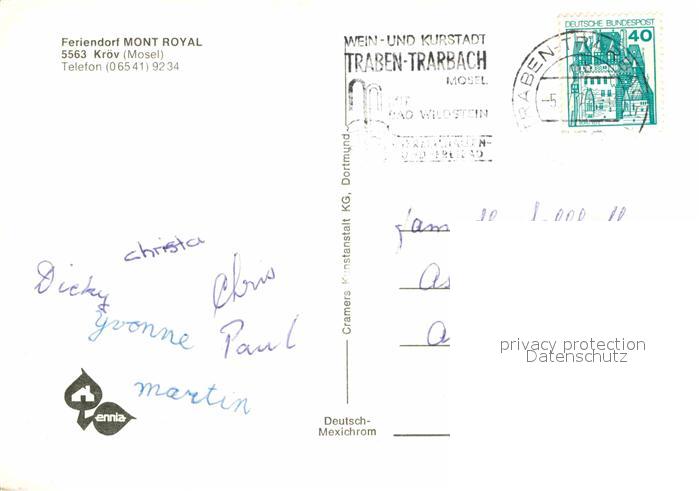 Feriendorf MONT ROYAL
5563 Kröv (Mosel)
Telefon (06541) 9234
WEIN-UND KURSTADT
TRABEN-TRARBACH
MOSEL
MIT
BAD WILDSTEIN
DEUTSCHE BUNDESPOST
40
TRABEN-TRA
-5.
christa
Dicky
Chris
Yvonne
Paul
martin
ennia
Cramers Kunstanstalt KG, Dortmund
Deutsch-
Mexichrom
fam
As
A
privacy protection
Datenschutz